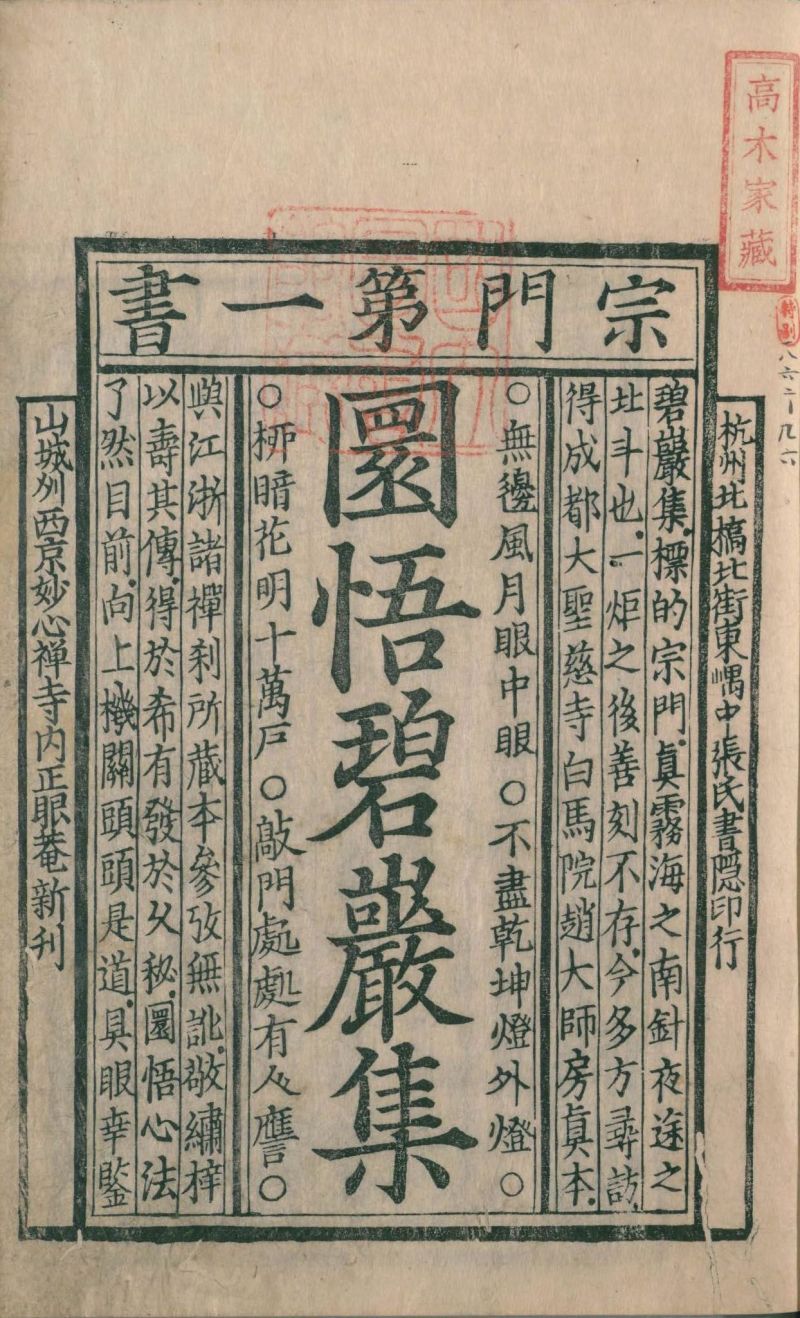 高木家藏
特別
八六二一
九六
宗門第一書
杭州北橋北街東嵎中張氏書隠印行
碧巖集標的宗門真霧海之南針夜途之
北斗也一炬之後善刻不存今多方尋訪
得成都大聖慈寺白馬院趙大師房真本
○無邊風月眼中眼○不盡乾坤燈外燈○
圜悟碧巖集
○桺暗花明十萬戶○敲門處處有人譍○
與江浙諸禪刹所藏本參攷無訛敬繡梓
以壽其傳得於希有發於久秘圜悟心法
了然目前向上機關頭頭是道具眼幸鑒
山城州西京妙心禅寺内正眼菴新刊